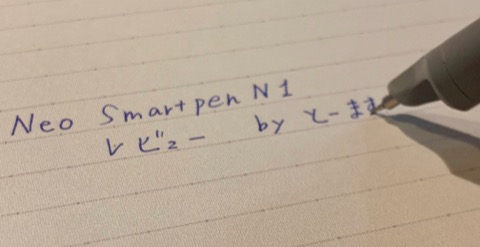 Neo Smartpen N1
レビュー by とーまま